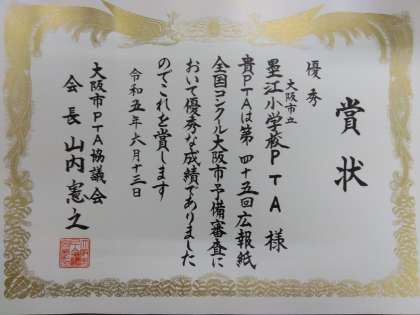 賞状
優秀
大阪市立
墨江小学校PTA様
貴PTAは第四十五回広報紙
全国コンクール大阪市予備審査に
おいて優秀な成績でありました
のでこれを賞します
令和五年六月十三日
大阪市PTA協議会
会長 山内憲之